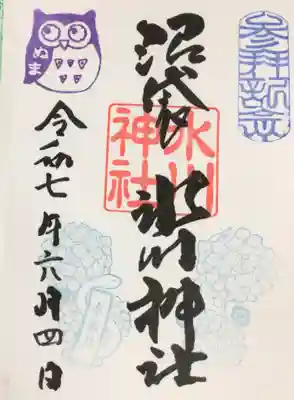 参拝記念
沼袋氷川神社
氷川神社
令和七年六月四日
ぬま